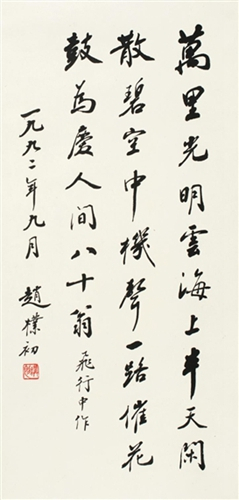 萬里光明雲海上半天閑
散碧空中機聲一路催花
鼓為慶人間八十翁
飛行中作
一九九二年九月
趙樸初